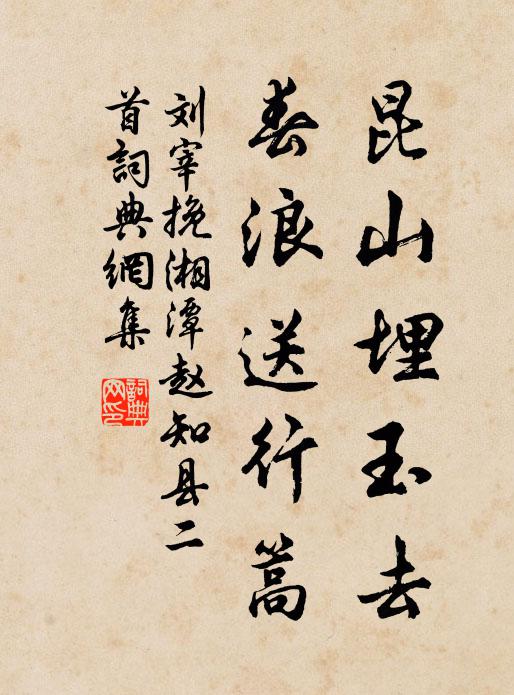 昆山埋玉去
春浪送行篙
刘宰挽湘潭赵知县二
首词典網集
詞典網印